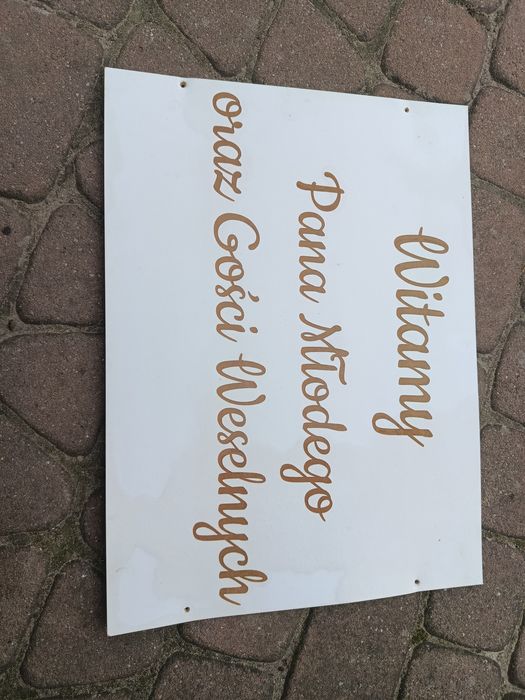 Witamy
Pana Młodego
oraz Gości Weselnych